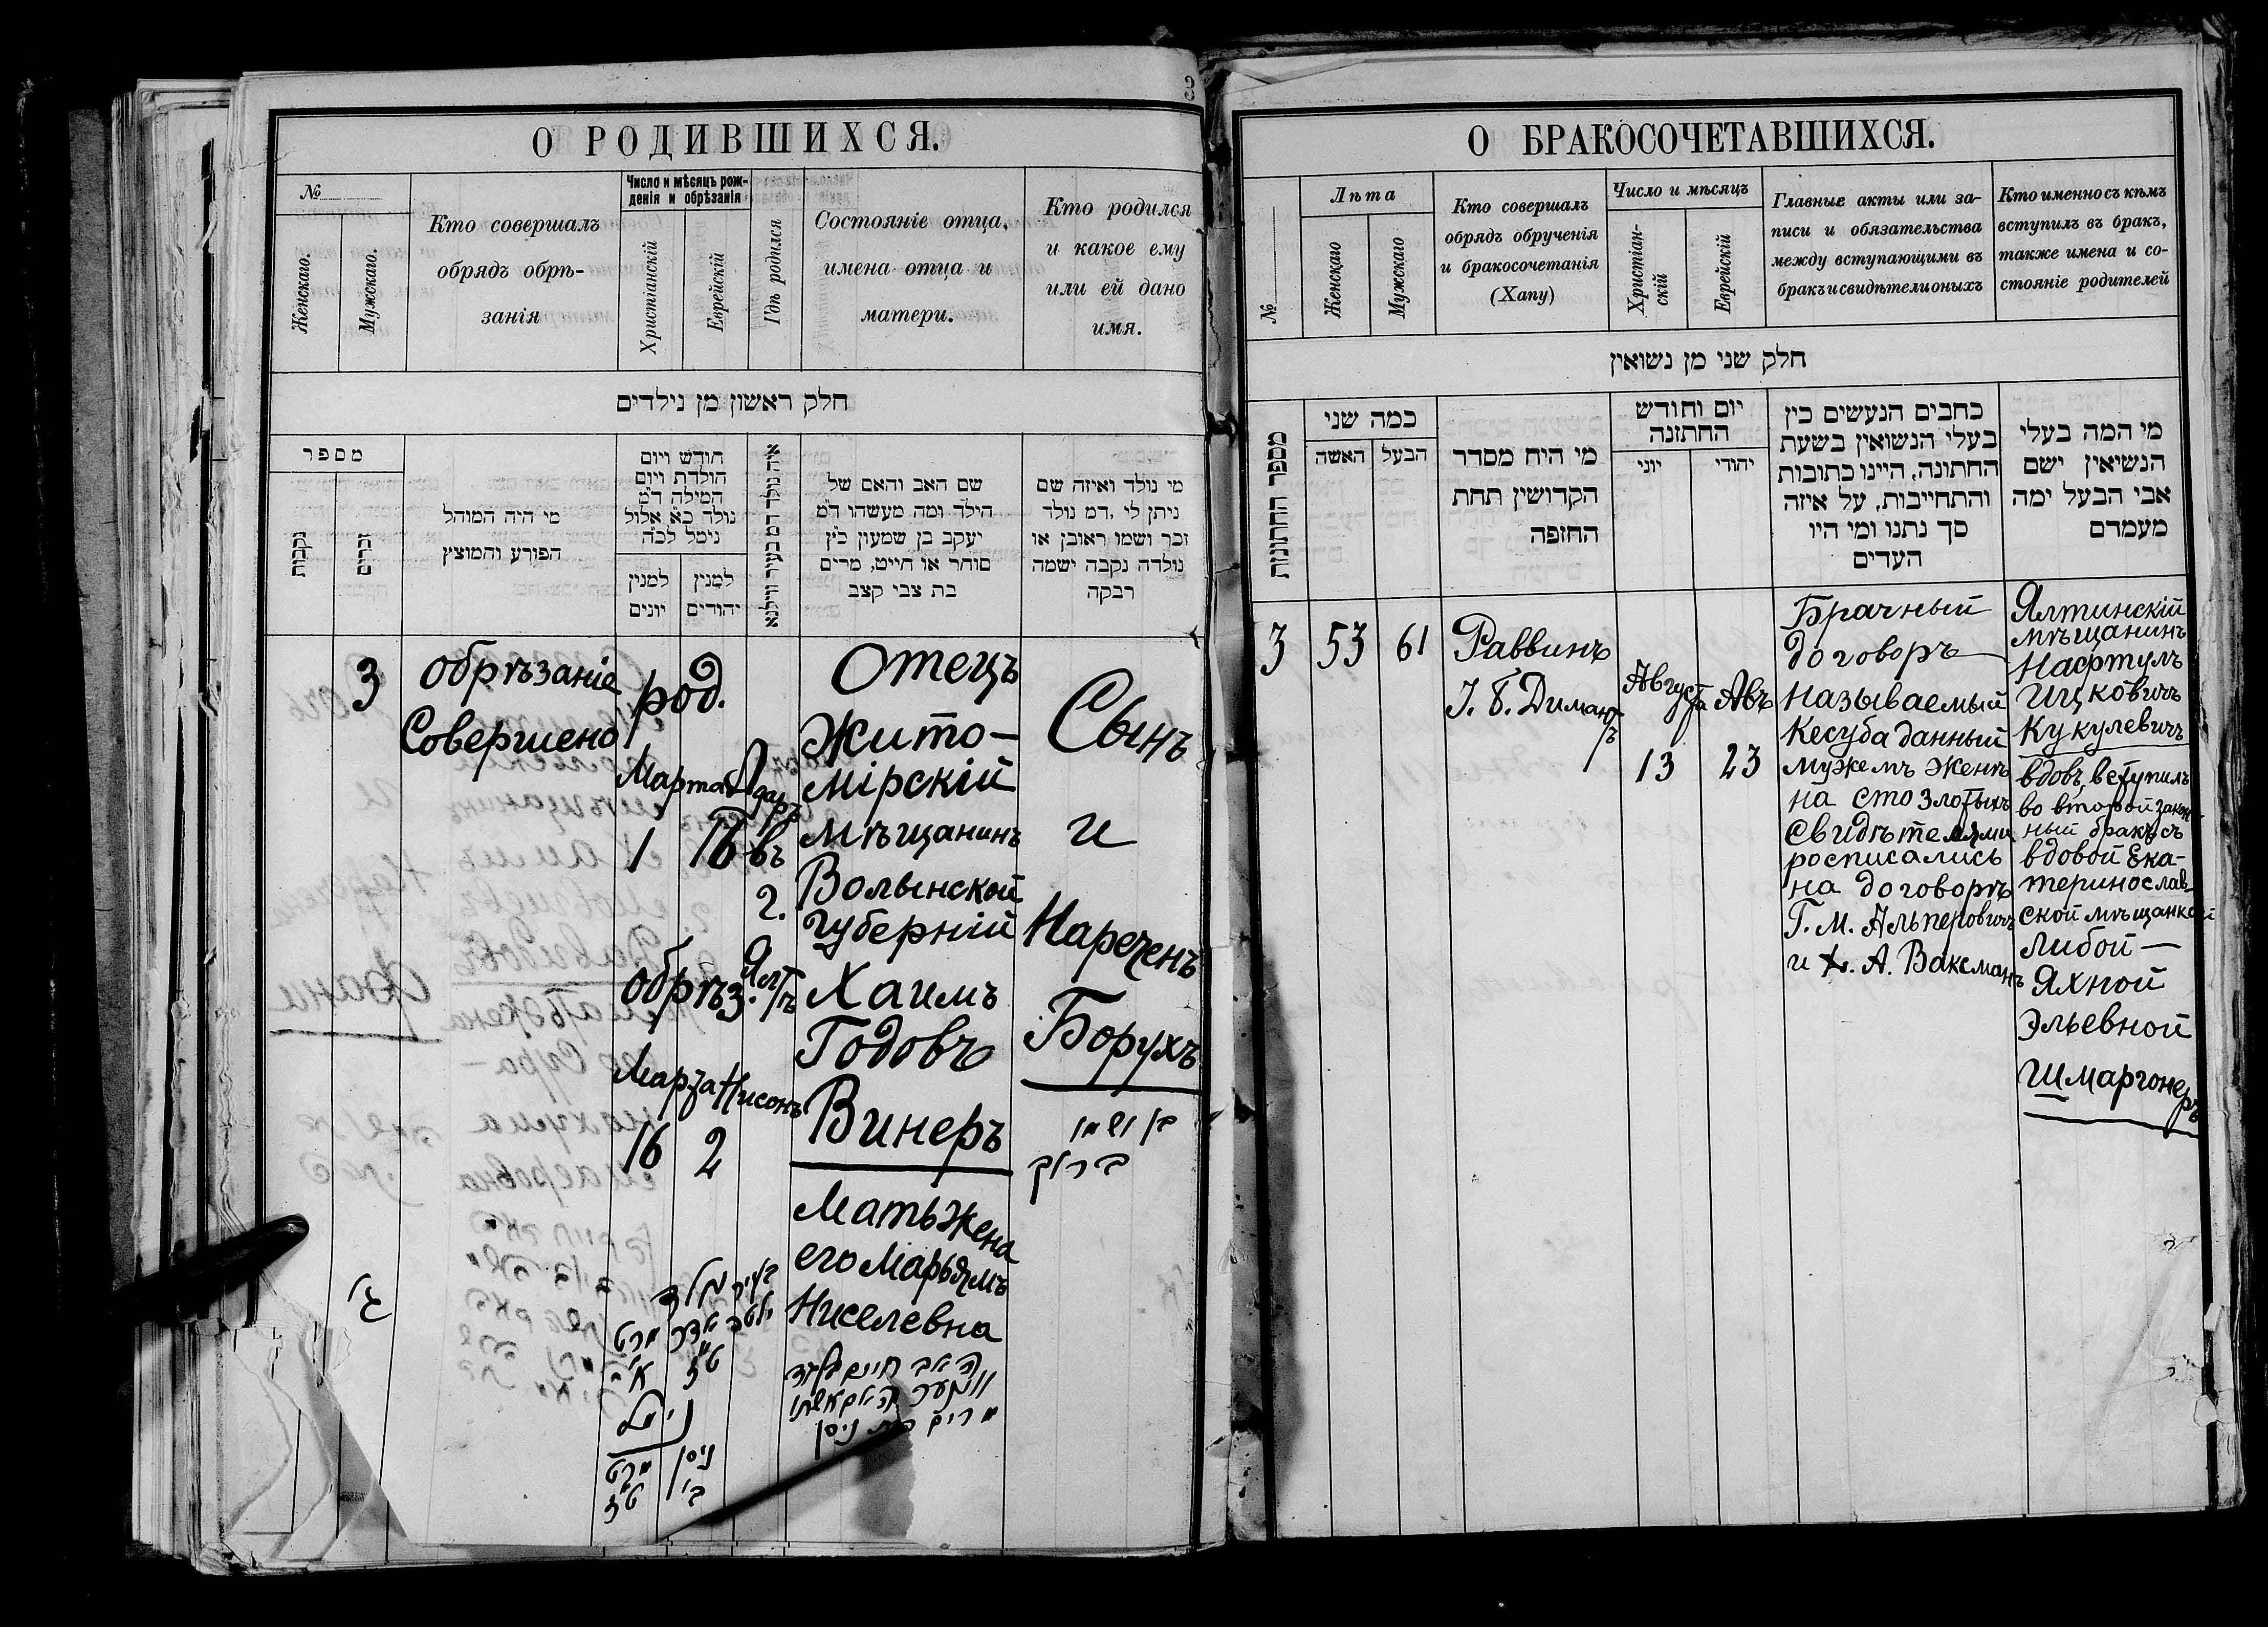 3
О РОДИВШИХСЯ.
№
Женскаго.
Мужскаго.
Кто совершалъ
обрядъ обрѣ-
занія
Число и мѣсяцъ рож-
денія и обрѣзанія
Христіанскій
Еврейскій
Гдѣ родился
Состояніе отца,
имена отца и
матери.
Кто родился
и какое ему
или ей дано
имя.
חלק ראשון מן נילדים
מספר
נקבות
זכרים
מי היה המוהל
הפורע והמוצץ
חודש ויום
הולדת ויום
המילה ד״מ
נולד כ״א אלול
נימל לכ״ה
למנין
יונים
למנין
יהודים
שם האב והאם של
הילד ומה מעשהו ד״מ
יעקב בן שמעון כ״ץ
סוחר או חייט, מרים
בת צבי קצב
מי נולד ואיזה שם
ניתן לו, ד״מ נולד
זכר ושמו ראובן או
נולדה נקבה ישמה
רבקה
3
Обрѣзаніе
Совершено
род.
Марта Адаръ
1 16
Обрѣз.
Марта Нисонъ
16 2
въ
г.
Ялтѣ
Отецъ
Жито-
мірскій
Мѣщанинъ
Волынской
губерніи
Хаимъ
Годовъ
Винеръ
Мать жена
его Марьямъ
Ниселевна
Сынъ
и
Нареченъ
Борухъ
בן ושמו
ברוך
ג׳
בעיר נולד
יאלטא אדר מרט
ט״ז א׳
נימל
ניסן מרט
ב׳ ט״ז
האב חיים
ווינער האם אשתו
מרים בת ניסן
О БРАКОСОЧЕТАВШИХСЯ.
№
Лѣта
Женскаго
Мужскаго
Кто совершалъ
обрядъ обрученія
и бракосочетанія
(Хапу)
Число и мѣсяцъ
Христіан-
скій
Еврейскій
Главные акты или за-
писи и обязательства
между вступающими въ
бракъ и свидѣтели оныхъ
Кто именно съ кѣмъ
вступилъ въ бракъ,
также имена и со-
стояніе родителей
חלק שני מן נשואין
מספר החתונות
כמה שני
האשה
הבעל
מי היה מסדר
הקדושין תחת
החופה
יום וחודש
החתונה
יוני
יהודי
כתבים הנעשים בין
בעלי הנשואין בשעת
החתונה, היינו כתובות
והתחייבות, על איזה
סך נתנו ומי היו
העדים
מי המה בעלי
הנשיאין ישם
אבי הבעל ימה
מעמדם
3
53
61
Раввинъ
І. Б. Димантъ
Августа
13
Авъ
23
Брачный
договоръ
называемый
Кесуба данный
мужемъ женѣ
на сто злотыхъ
Свидѣтелями
росписались
на договорѣ
Г. М. Альперовичъ
и А. Ваксманъ
Ялтинскій
мѣщанинъ
Нафтулъ
Ицковичъ
Кукулевичъ
вдовъ, вступилъ
во второй закон-
ный бракъ съ
вдовой Ека-
теринослав-
ской мѣщанкой
Либой —
Яхной
Эльевной
Шмаргонеръ